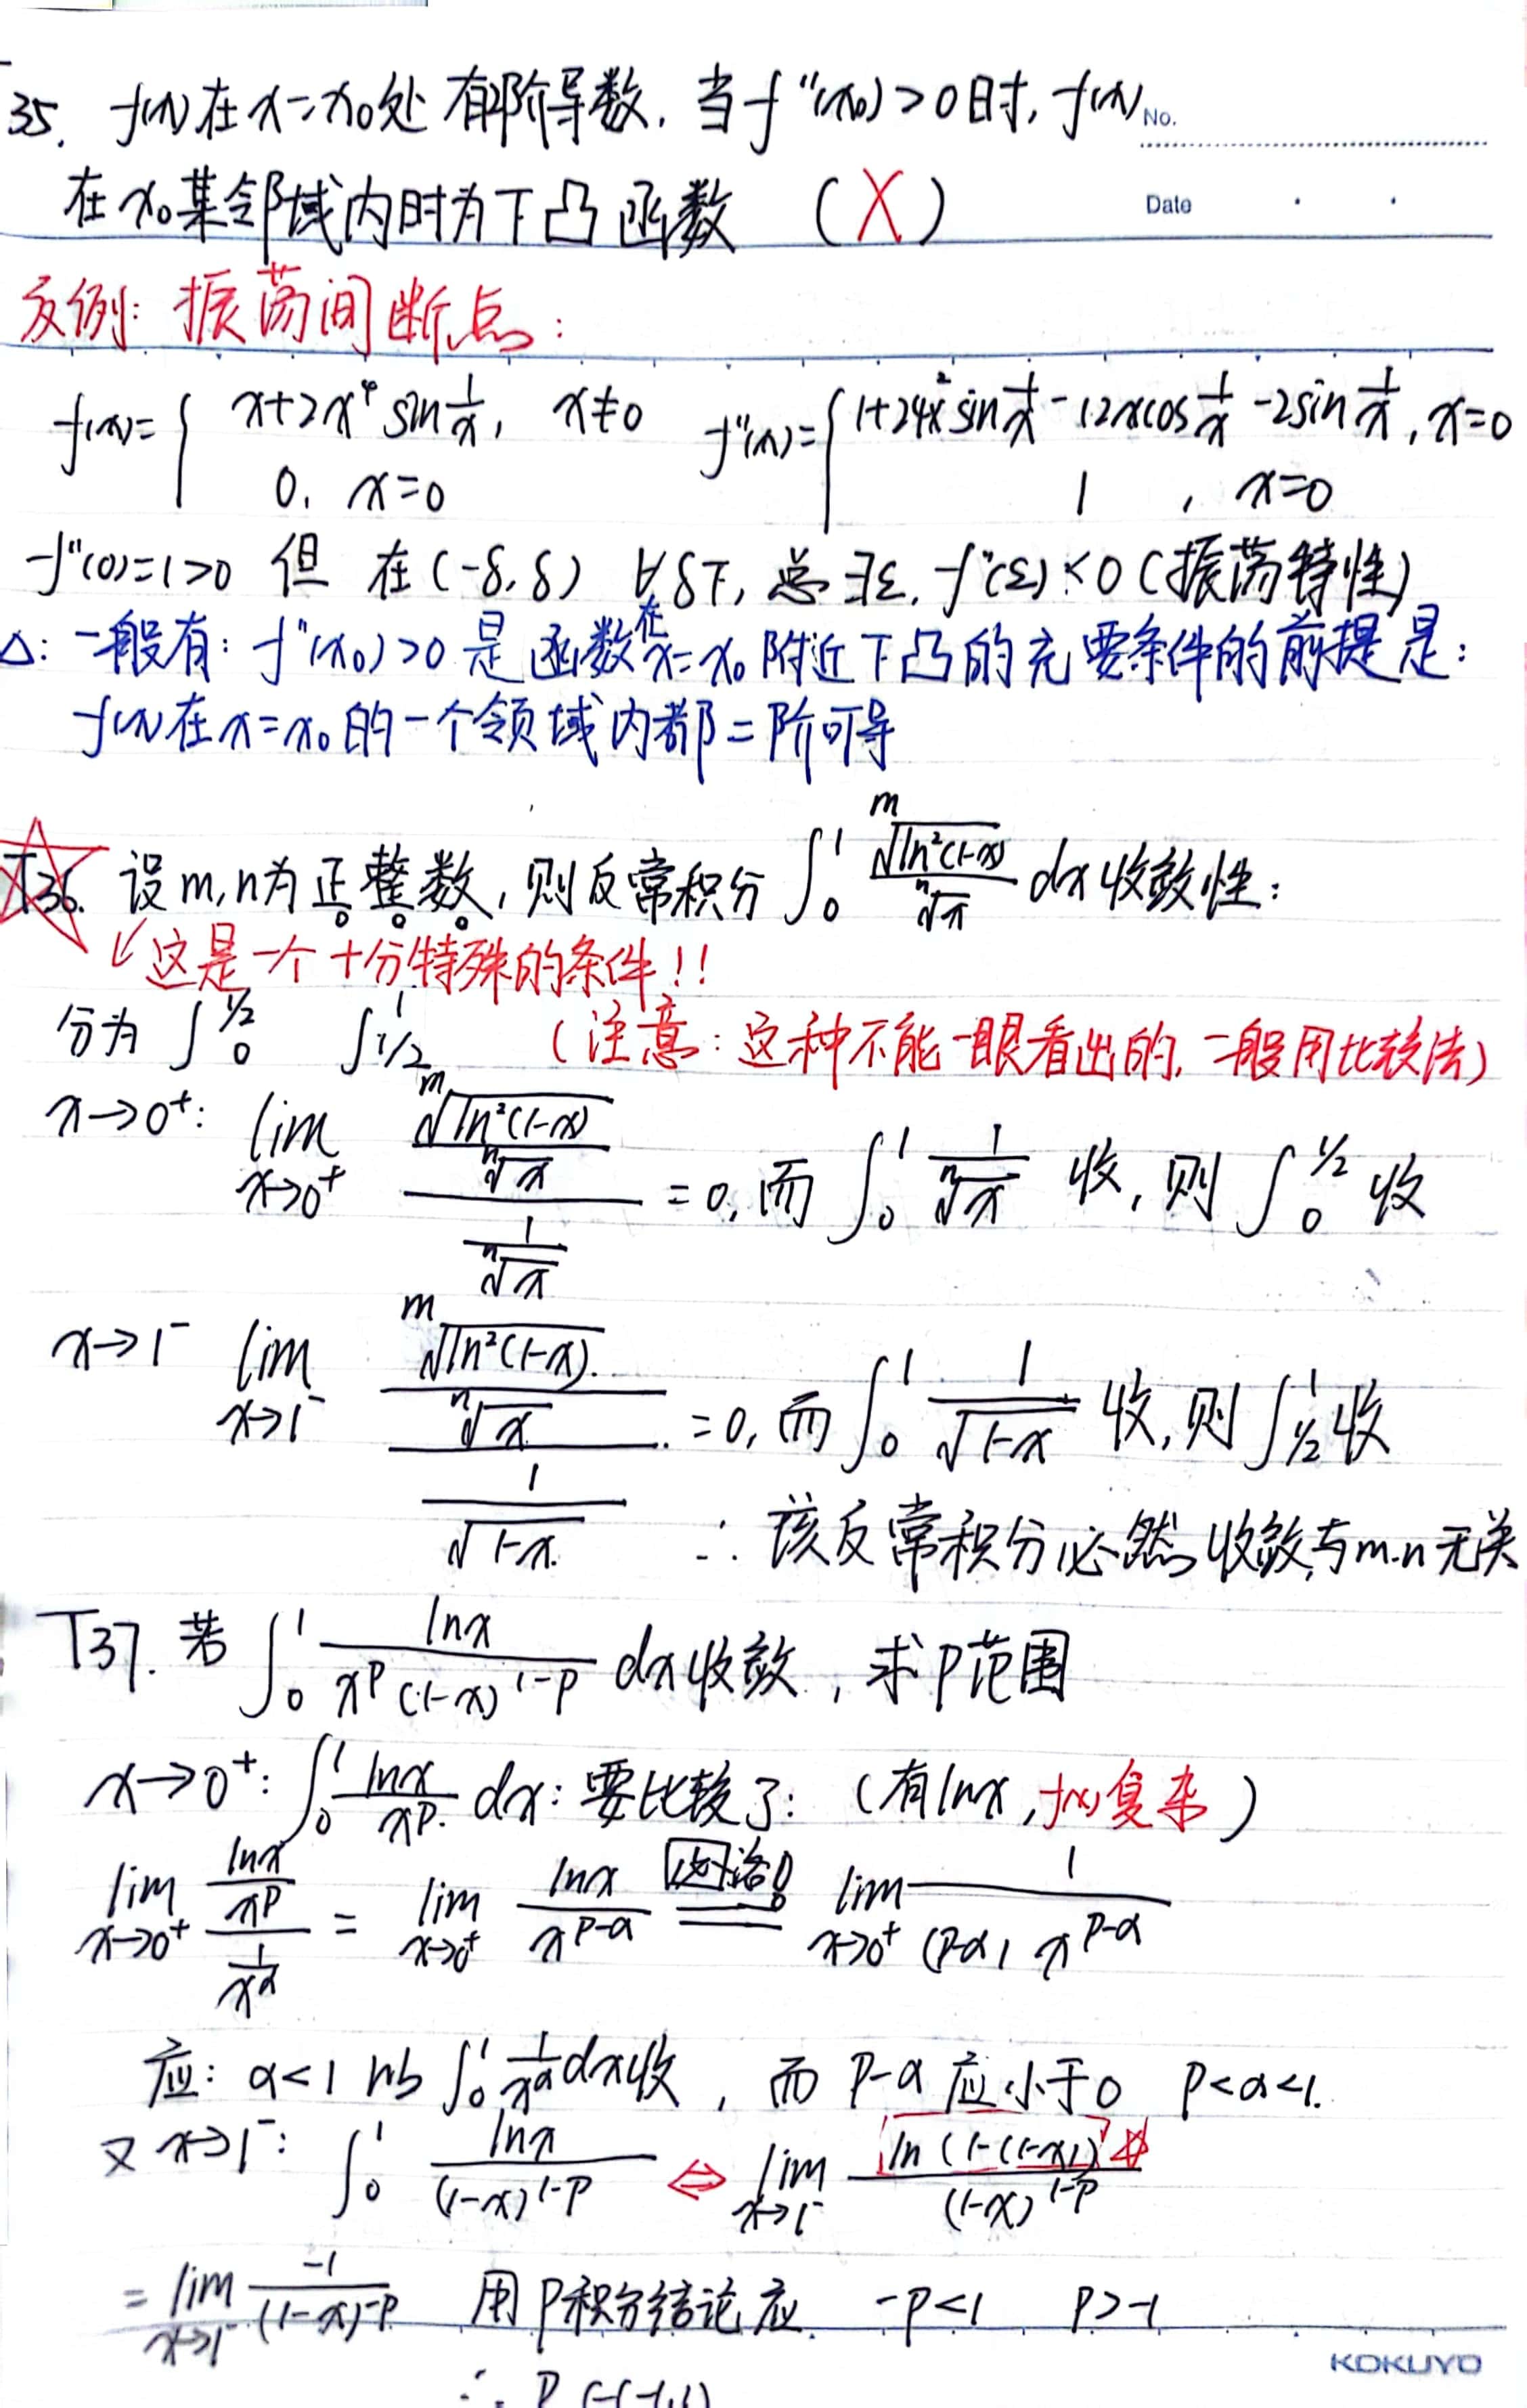 35. f(x)在x=x₀处有二阶导数. 当f''(x₀)>0时, f(x)
No.
在x₀某邻域内时为下凸函数 (X)
Date
反例: 振荡间断点:
f(x)={ x+2x⁴ sin 1/x, x≠0 f''(x)={ 1+24x² sin 1/x - 12x cos 1/x - 2sin 1/x, x=0
0, x=0 1, x=0
f''(0)=1>0 但 在(-δ,δ) ∀δ下, 总∃ε, f''(ε)<0 (振荡特性)
△: 一般有: f''(x₀)>0 是 函数在x=x₀ 附近下凸的充要条件的前提是:
f(x)在x=x₀的一个领域内都二阶可导
T36. 设m,n为正整数, 则反常积分 ∫₀¹ ᵐ√ln²(1-x) / ⁿ√x dx 收敛性:
↙这是一个十分特殊的条件!!
分为 ∫₀^1/2 ∫_1/2^1 (注意: 这种不能一眼看出的, 一般用比较法)
x→0⁺: lim x→0⁺ (ᵐ√ln²(1-x) / ⁿ√x) / (1/ⁿ√x) = 0, 而 ∫₀¹ 1/ⁿ√x 收, 则 ∫₀^1/2 收
x→1⁻ lim x→1⁻ (ᵐ√ln²(1-x) / ⁿ√x) / (1/√1-x) = 0, 而 ∫₀¹ 1/√1-x 收, 则 ∫_1/2^1 收
∴ 该反常积分必然收敛与m.n无关
T37. 若 ∫₀¹ lnx / x^p (1-x)^1-p dx 收敛, 求p范围
x→0⁺: ∫₀¹ lnx / x^p dx: 要比较了: (有lnx, f(x)复杂)
lim x→0⁺ (lnx / x^p) / (1/x^α) = lim x→0⁺ lnx / x^p-α 洛 lim x→0⁺ 1 / (p-α) x^p-α
应: α<1 ∫₀¹ 1/x^α dx收, 而 p-α 应小于0 p<α<1.
又 x→1⁻: ∫₀¹ lnx / (1-x)^1-p ⇔ lim x→1⁻ ln(1-(1-x)) / (1-x)^1-p
= lim x→1⁻ -1 / (1-x)^-p 用p积分结论应 -p<1 p>-1
KOKUYO
∴ P∈(-1,1)